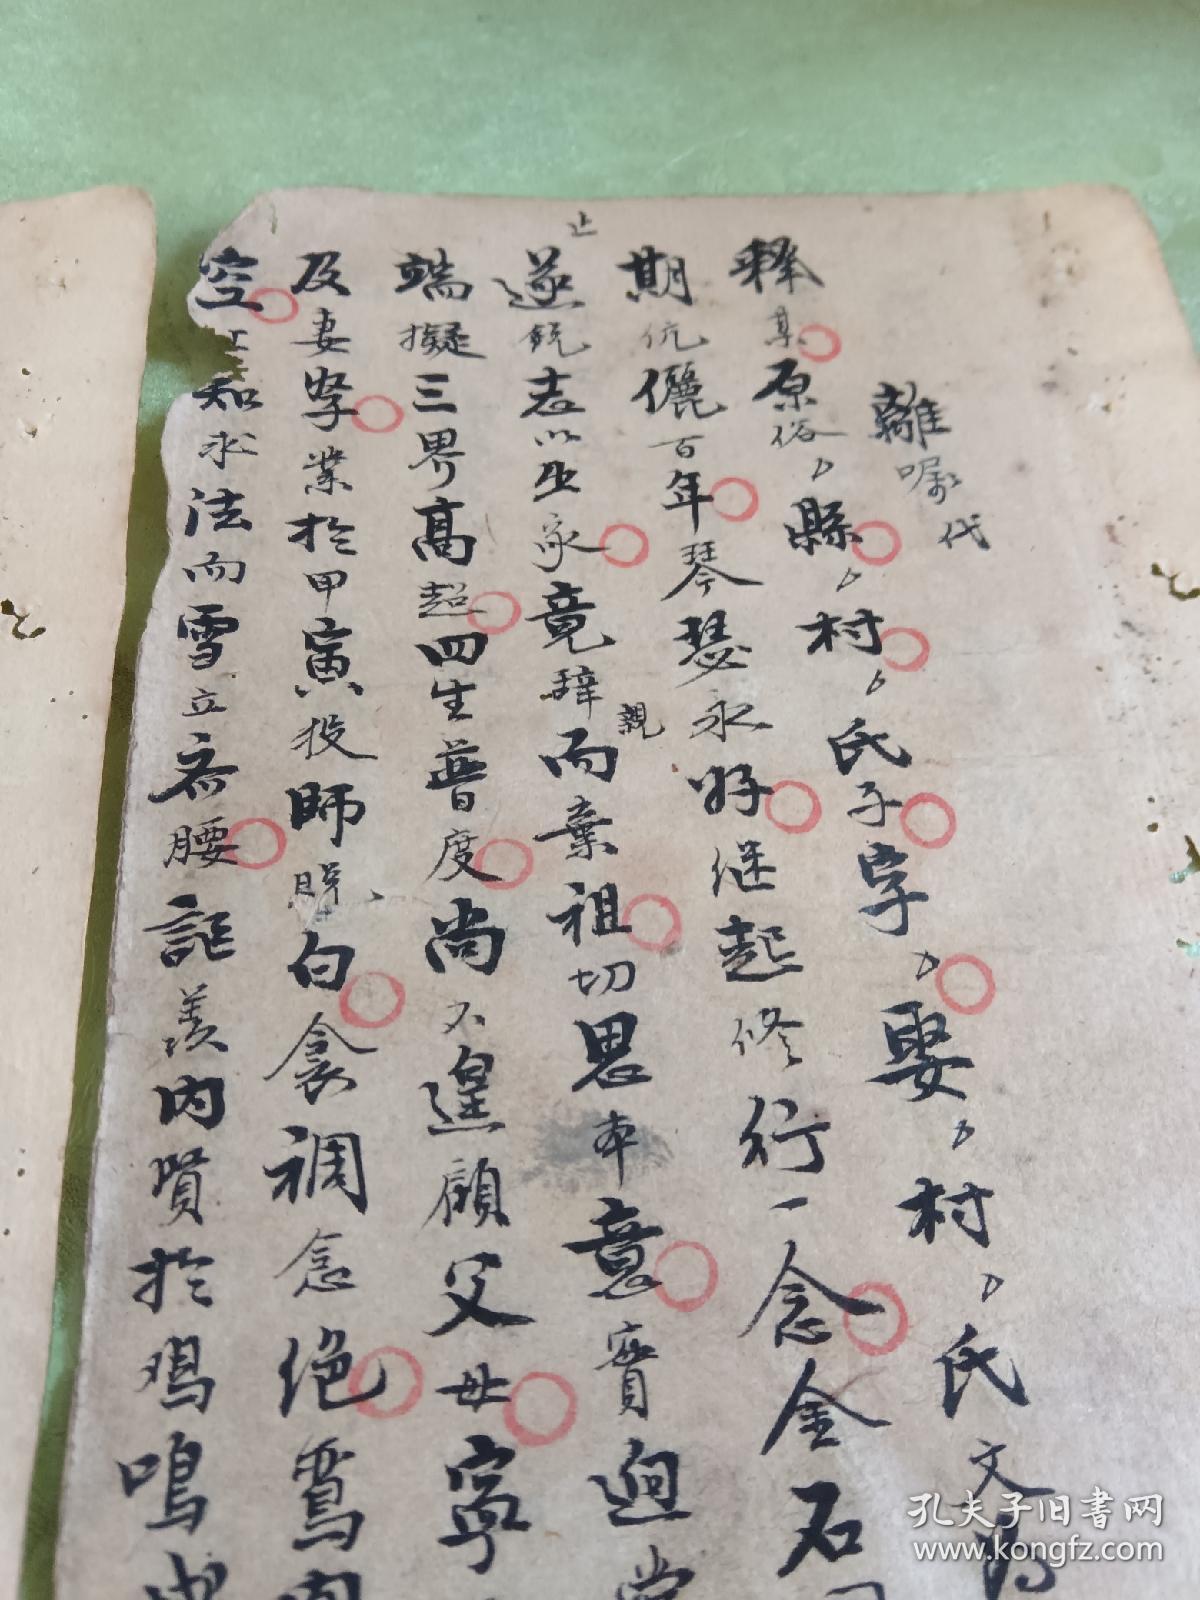 離嘱代
釋某原俗、縣、村、氏子字、娶、村、氏文
期伉儷百年琴瑟永好继起修行一念金石
止
遂銳志以出家竟辞親而棄祖切思本意實迥
端擬三界高超四生普度尚不遑顧父母寧
及妻孥業於甲寅投師白衾裯念绝鴛
空知求法而雪立齐腰詎羨内賢於鸡鳴
孔夫子旧书网
www.kongfz.com